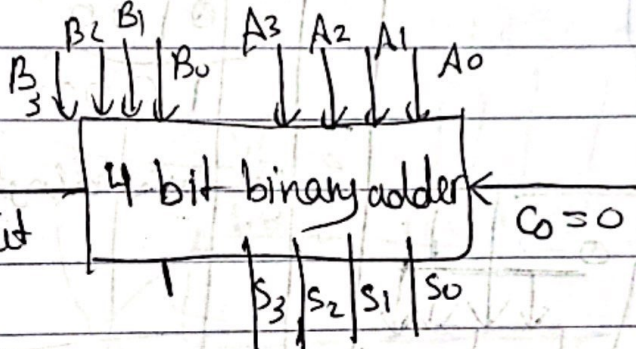 B3 B2 B1 B0 A3 A2 A1 A0
4 bit binary adder
C0 = 0
S3 S2 S1 S0